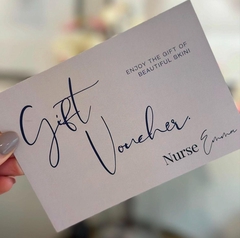 ENJOY THE GIFT OF
BEAUTIFUL SKIN!
Gift
Voucher.
Nurse Emma